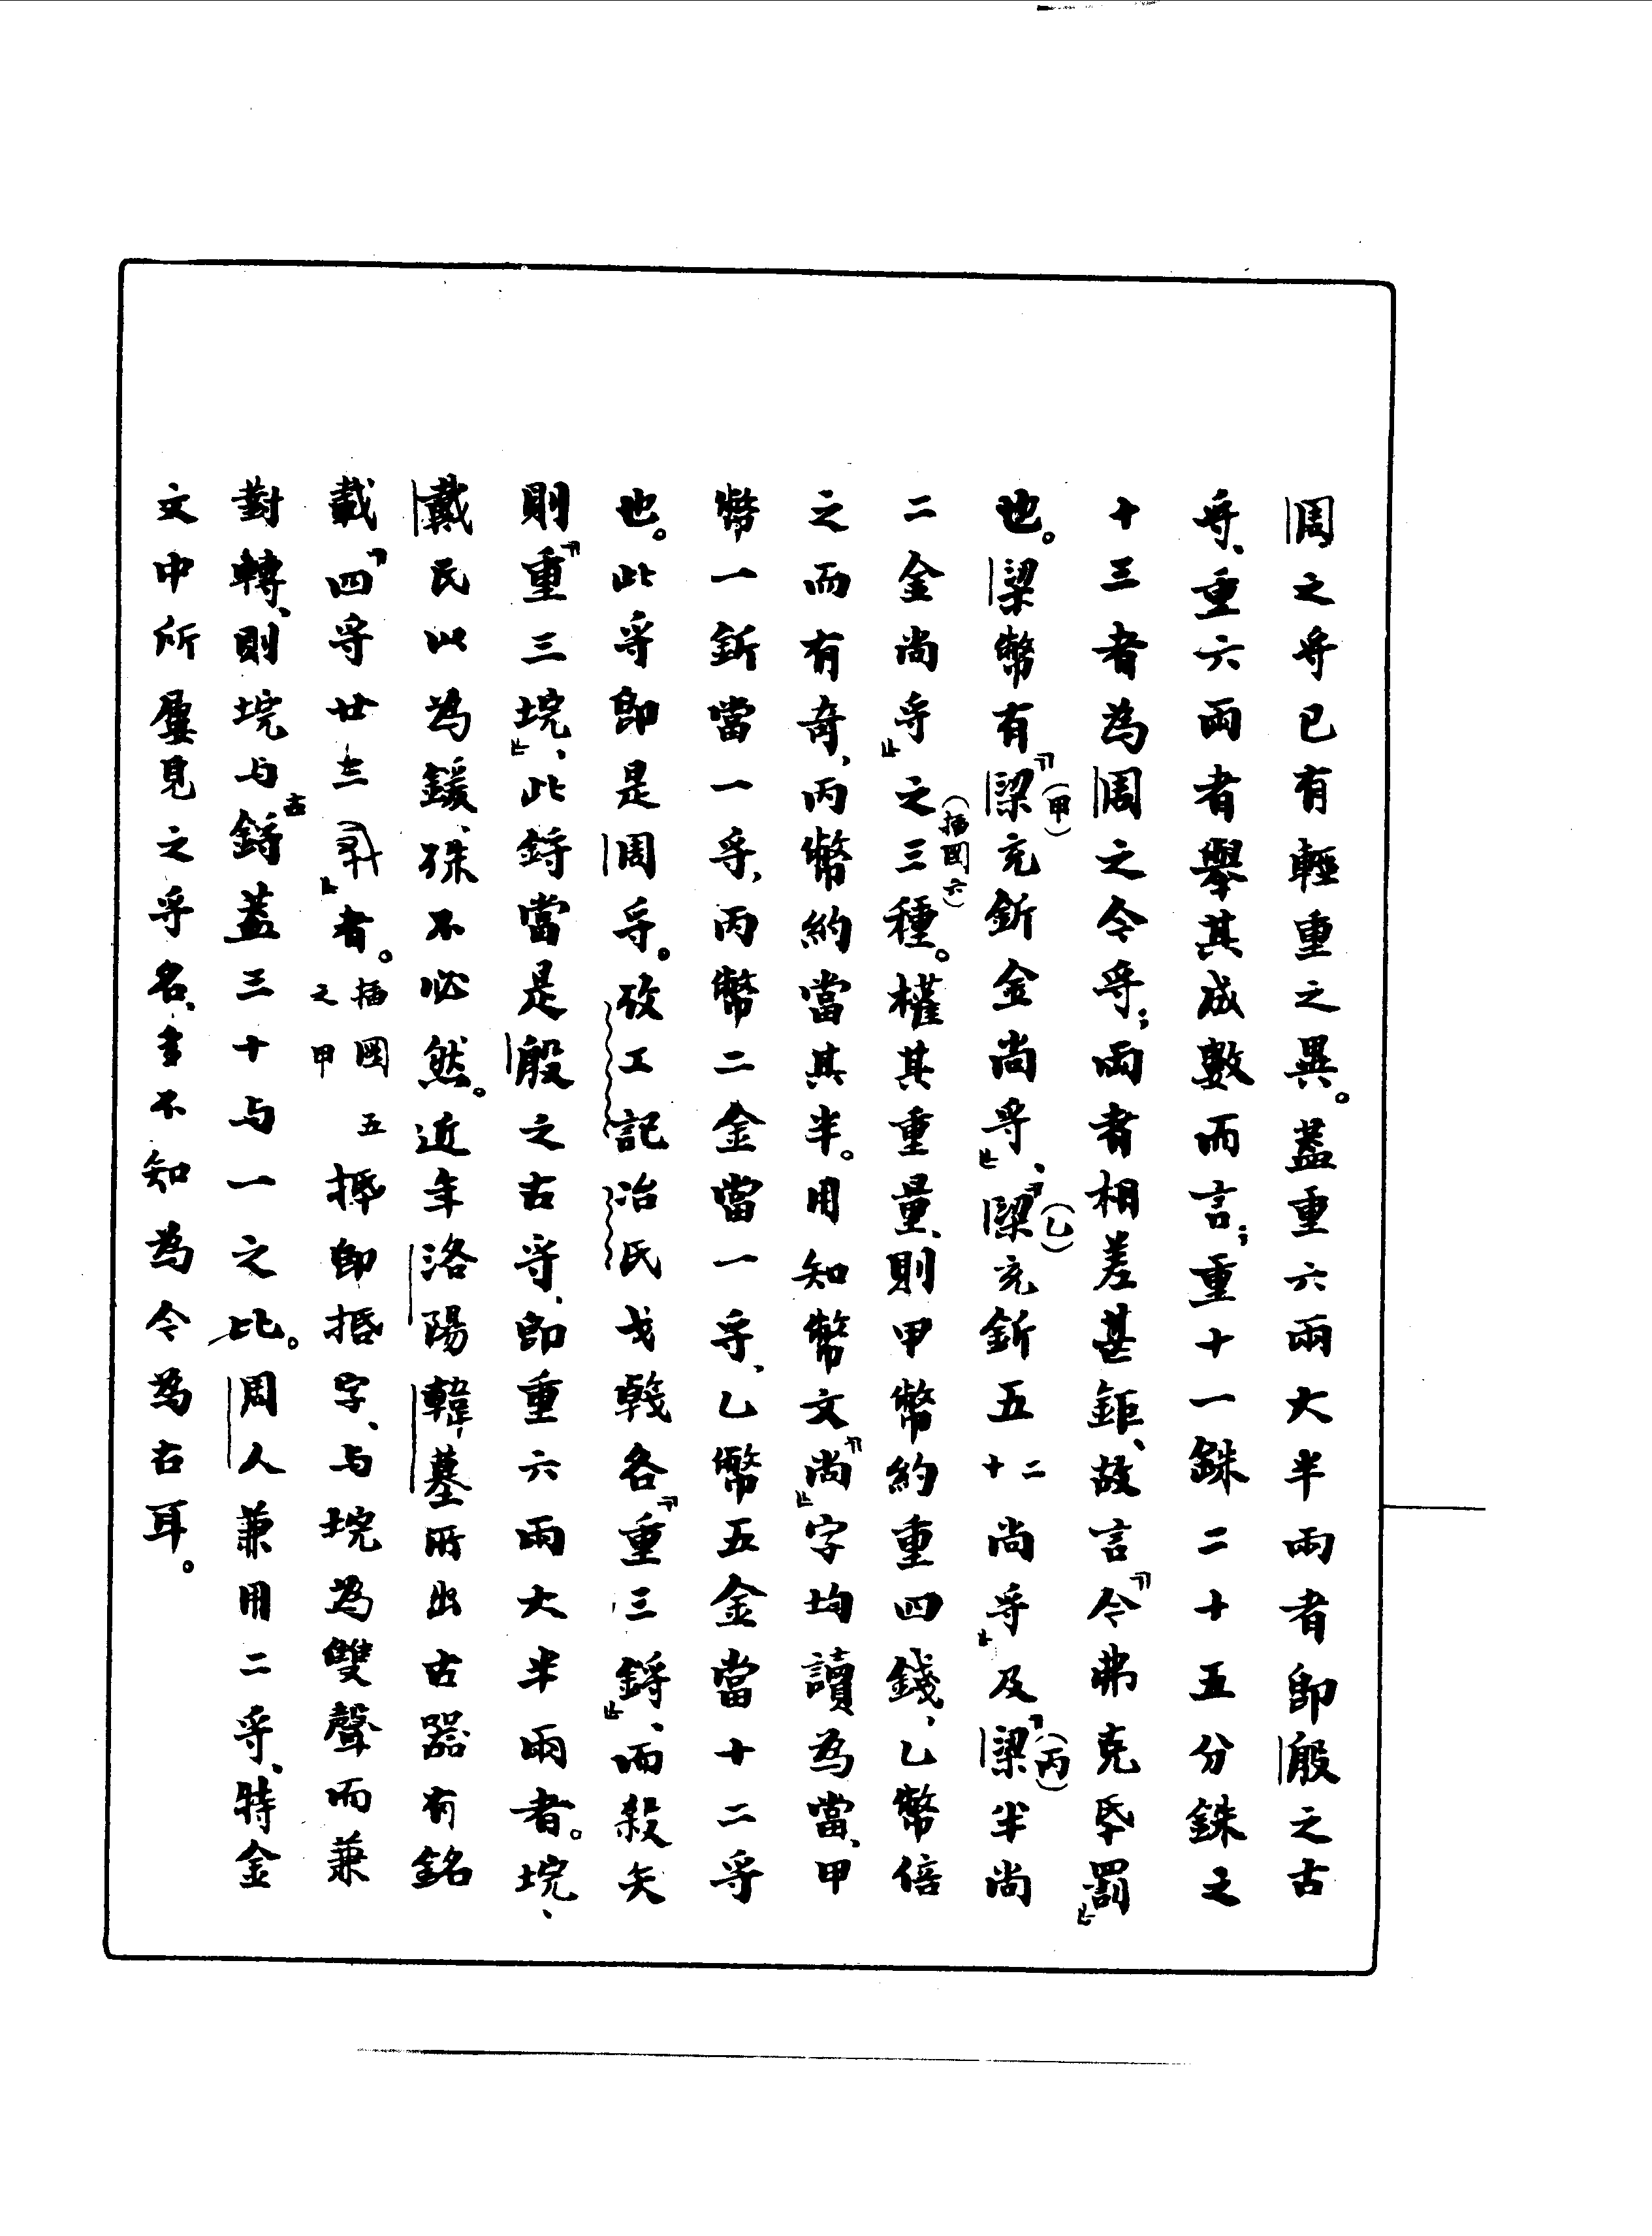 周之寽已有輕重之異。蓋重六兩大半兩者即殷之古
寽、重六兩者舉其成數而言；重十一銖二十五分銖之
十三者為周之今寽；兩者相差甚鉅、故言『今弗克氒罰』
也。梁幣有『梁充釿金尚寽』(甲)、『梁充釿五二十尚寽』(乙)及『梁半尚(丙)
二金尚寽』之三種(插圖六)。權其重量、則甲幣約重四錢、乙幣倍
之而有奇、丙幣約當其半。用知幣文『尚』字均讀為當、甲
幣一釿當一寽、丙幣二金當一寽、乙幣五金當十二寽
也。此寽即是周寽。攷工記冶氏戈戟各『重三鋝』、而殺矢
則『重三垸』、此鋝當是殷之古寽、即重六兩大半兩者。垸、
戴氏以為鍰、殊不必然。近年洛陽韓墓所出古器有銘
載『四寽廿三』者。插圖五之甲 捀即捪字、与垸為雙聲而兼
對轉、則垸与古鋝蓋三十与一之比。周人兼用二寽、特金
文中所屢見之寽名、多不知為今為古耳。